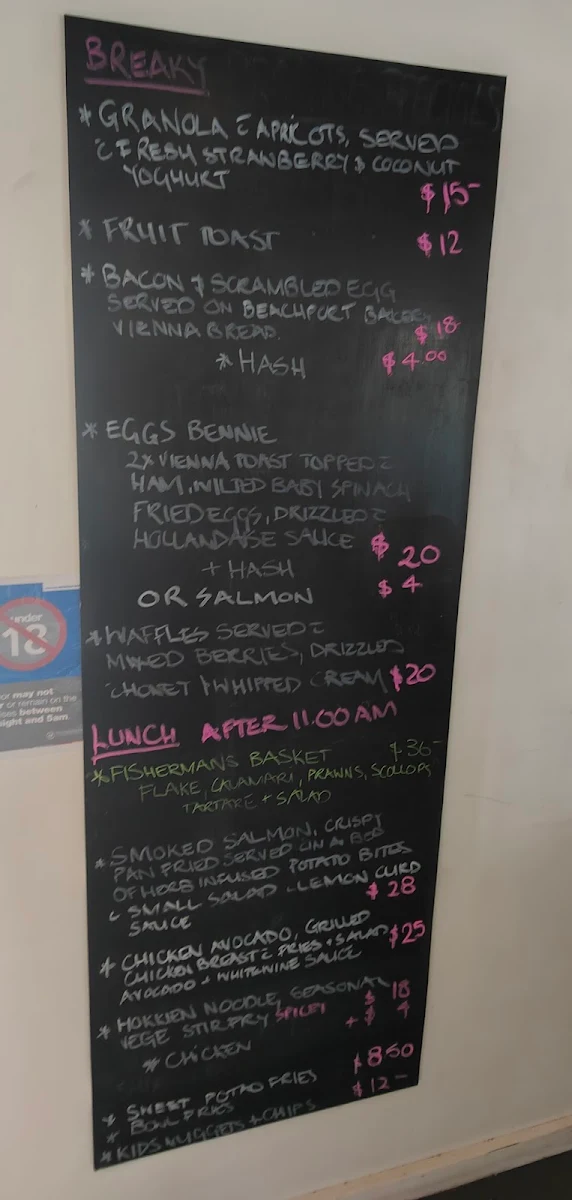 BREAKY
* GRANOLA C APRICOTS, SERVED
C FRESH STRANBERRY & COCONUT
YOGHURT
$15-
* FRUIT TOAST $12
* BACON & SCRAMBLED EGG
SERVED ON BEACHPORT BAKERY
VIENNA BREAD. $18-
* HASH $4.00
* EGGS BENNIE
2x VIENNA TOAST TOPPED C
HAM, WILTED BABY SPINACH
FRIED EGGS, DRIZZLED C
HOLLANDAISE SAUCE $20
+ HASH $4
OR SALMON
* WAFFLES SERVED C
MIXED BERRIES, DRIZZLED
C HONEY & WHIPPED CREAM $20
LUNCH AFTER 11.00AM
* FISHERMANS BASKET $36-
FLAKE, CALAMARI, PRAWNS, SCOLLOPS
TARTARE + SALAD
* SMOKED SALMON, CRISPY
PAN FRIED SERVED ON A BED
OF HERB INFUSED POTATO BITES
C SMALL SALAD C LEMON CURD
SAUCE $28
* CHICKEN AVOCADO, GRILLED
CHICKEN BREAST C FRIES + SALAD $25
AVOCADO + WHITE WINE SAUCE
* HOKKIEN NOODLE, SEASONAL $18
VEGE STIR FRY SPICEY + $4
* CHICKEN
* SWEET POTATO FRIES $8.50
* BOWL FRIES $12-
* KIDS NUGGETS + CHIPS
under
18
or may not
or remain on the
ses between
ight and 5am.